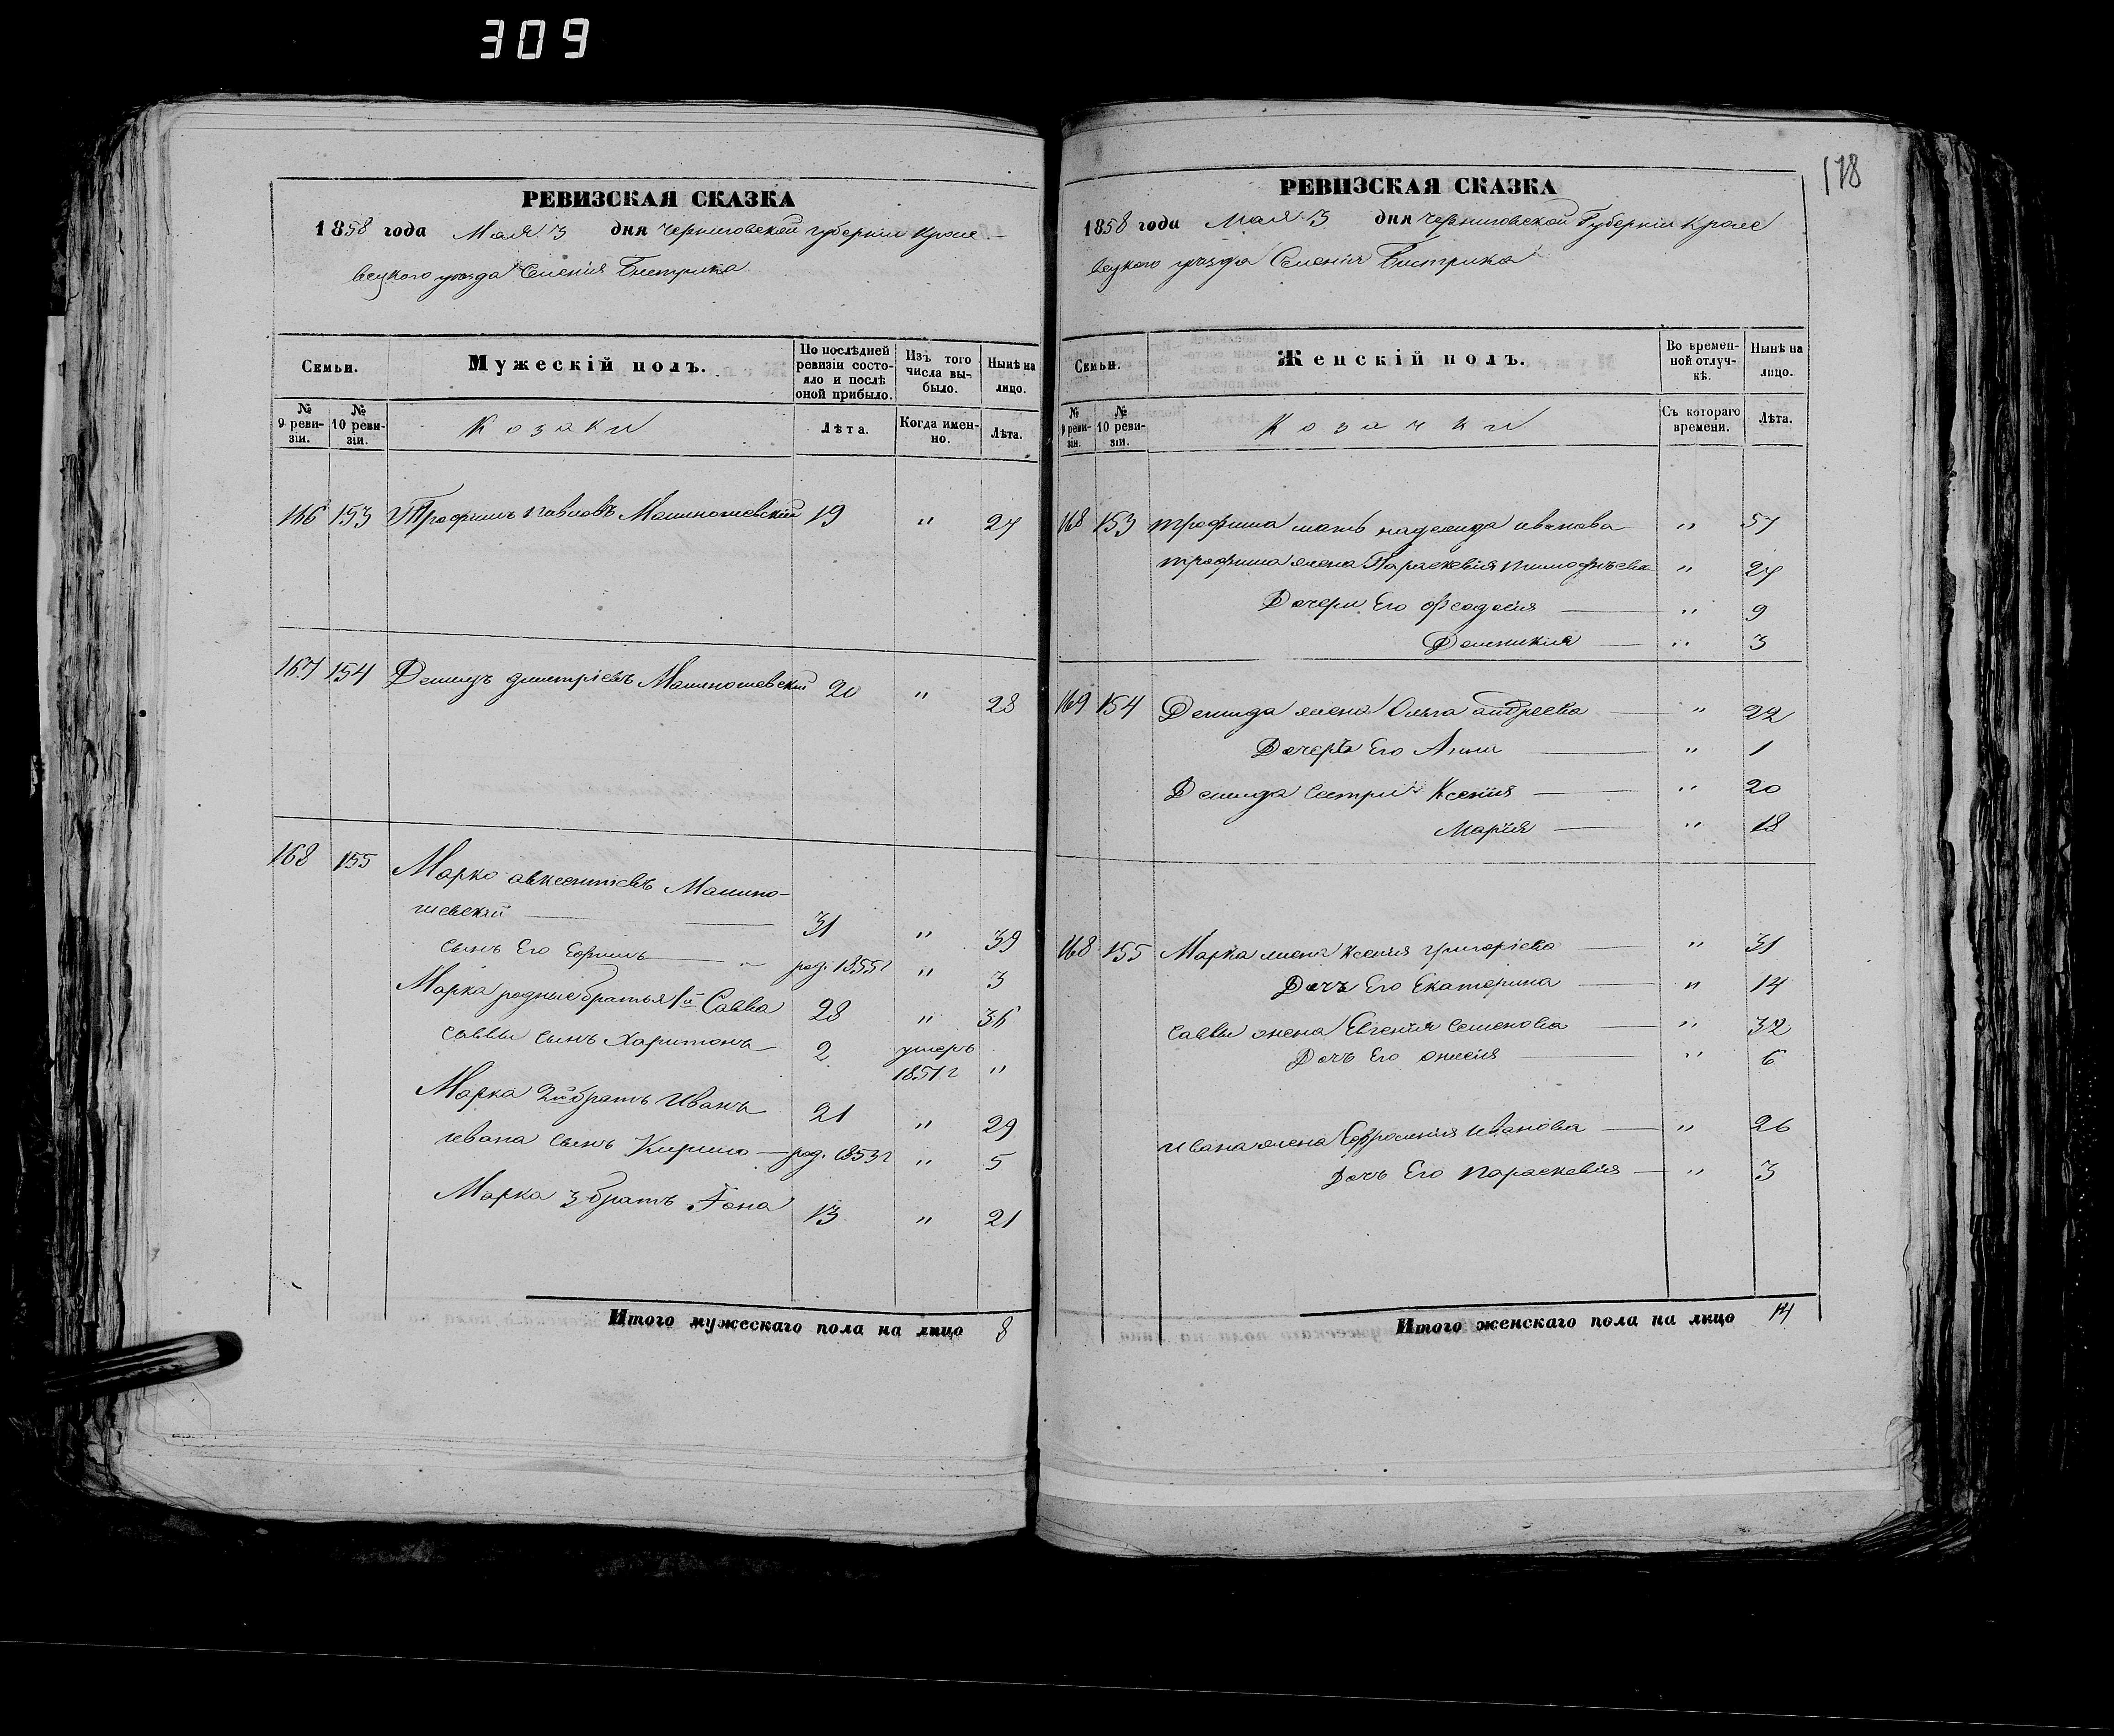 309
178
РЕВИЗСКАЯ СКАЗКА
1858 года Мая 3 дня Черниговской губерніи Кроле-
вецкого уезда Селенія Бистрика
Семьи.
Мужескій полъ.
По послѣдней ревизіи состояло и послѣ оной прибыло.
Изъ того числа выбыло.
Нынѣ на лицо.
№ 9 ревизіи.
№ 10 ревизіи.
Козаки
Лѣта.
Когда именно.
Лѣта.
166 153 Трофимъ Павловъ 19 " 27
167 154 Демидъ Дмитріевъ 20 " 28
168 155 Марко Авксентіевъ
31 " 39
сынъ Его Ефимъ — " род. 1855 г " 3
Марка родные братья 1й Савва 28 " 36
Саввы сынъ Харитонъ 2 умеръ 1851 г "
Марка 2й братъ Иванъ 21 " 29
Ивана сынъ Кирило — род. 1853 г " 5
Марка 3 братъ 13 " 21
Итого мужескаго пола на лицо 8
РЕВИЗСКАЯ СКАЗКА
1858 года Мая 3 дня Черниговской Губерніи Кроле
вецкого уезда Селенія Бистрика
Семьи.
Женскій полъ.
Во временной отлучкѣ.
Нынѣ на лицо.
№ 9 ревизіи.
№ 10 ревизіи.
Козачки
Съ котораго времени.
Лѣта.
168 153 Трофима мать Иванова " 57
Трофима жена Параскевія Тимофѣева " 27
Дочери Его Феодосія — " 9
Домникія — " 3
169 154 Демида жена Ольга Андреева — " 22
Дочерь Его Анна — " 1
Демида Сестри Ксенія — " 20
Марія — " 18
168 155 Марка жена Ксенія Григоріева — " 31
Дочъ Его Екатерина — " 14
Саввы жена Евгенія Семенова — " 32
Дочь Его — " 6
Ивана жена Ефросинія Иванова — " 26
Дочь Его Параскевія — " 3
Итого женскаго пола на лицо 14